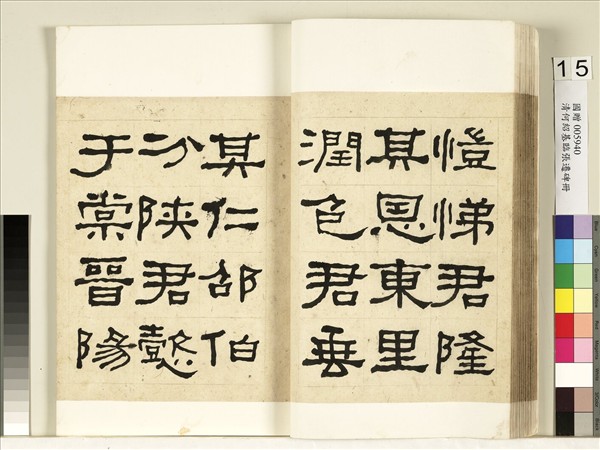 愷悌君隆
其恩東里
潤色君垂
其仁邵伯
分陝君懿
于棠晉陽
15
國贈 005940
清何紹基臨張遷碑冊